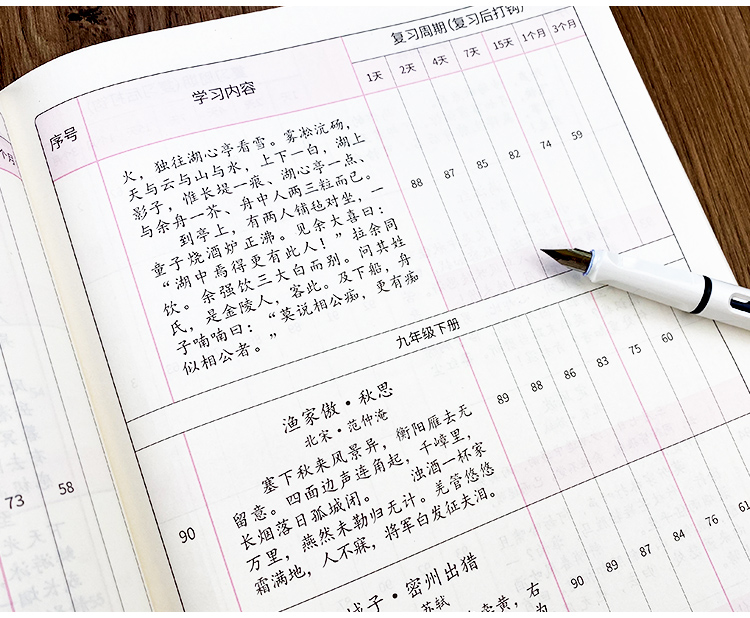 复习周期(复习后打钩)
序号
学习内容
1天
2天
4天
7天
15天
1个月
3个月
火，独往湖心亭看雪。雾凇沆砀，
天与云与山与水，上下一白，湖上
影子，惟长堤一痕、湖心亭一点、
与余舟一芥、舟中人两三粒而已。
到亭上，有两人铺毡对坐，一
童子烧酒炉正沸。见余大喜曰：
“湖中焉得更有此人！”拉余同
饮。余强饮三大白而别。问其姓
氏，是金陵人，客此。及下船，舟
子喃喃曰：“莫说相公痴，更有痴
似相公者。”
88
87
85
82
74
59
九年级下册
渔家傲·秋思
北宋·范仲淹
塞下秋来风景异，衡阳雁去无
留意。四面边声连角起，千嶂里，
长烟落日孤城闭。 浊酒一杯家
万里，燕然未勒归无计。羌管悠悠
霜满地，人不寐，将军白发征夫泪。
90
89
88
86
83
75
60
子·密州出猎
苏轼
黄，右
为
90
89
87
84
76
61
个月
73
58